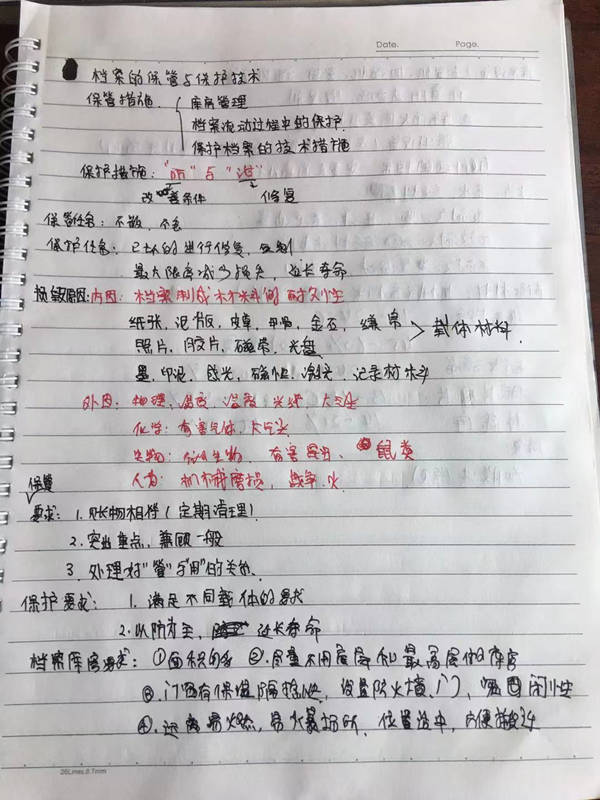 Date. Page.
档案的保管与保护技术
保管措施 { 库房管理
档案流动过程中的保护.
保护档案的技术措施
保护措施: "防" 与 "治"
改善条件 修复
保管任务: 不散, 不乱
保护任务: 已坏的进行修复, 复制
最大限度减少损失, 延长寿命
损毁原因: 内因: 档案制成材料的耐久性
纸张, 泥板, 皮草, 甲骨, 金石, 缣帛 > 载体材料.
照片, 胶片, 磁带, 光盘
墨, 印泥, 感光, 磁性, 激光, 记录材料
外因: 物理: 温度, 湿度, 光线, 大气尘
化学: 有害气体, 大气尘
生物: 微生物, 有害昆虫, 鼠类
人为: 机械磨损, 战争, 火.
保管
要求: 1. 账物相符 (定期清理)
2. 突出重点, 兼顾一般
3. 处理好"管"与"用"的关系.
保护要求: 1. 满足不同载体的要求
2. 以防为主, 延长寿命
档案库房要求: ①面积够多 ②.尽量不用底层和最高层做库房
③.门窗有保温隔热性, 设置防火墙、门, 闭性
④.远离易燃, 易火暴场所, 位置适中, 方便
26Lines.8.7mm